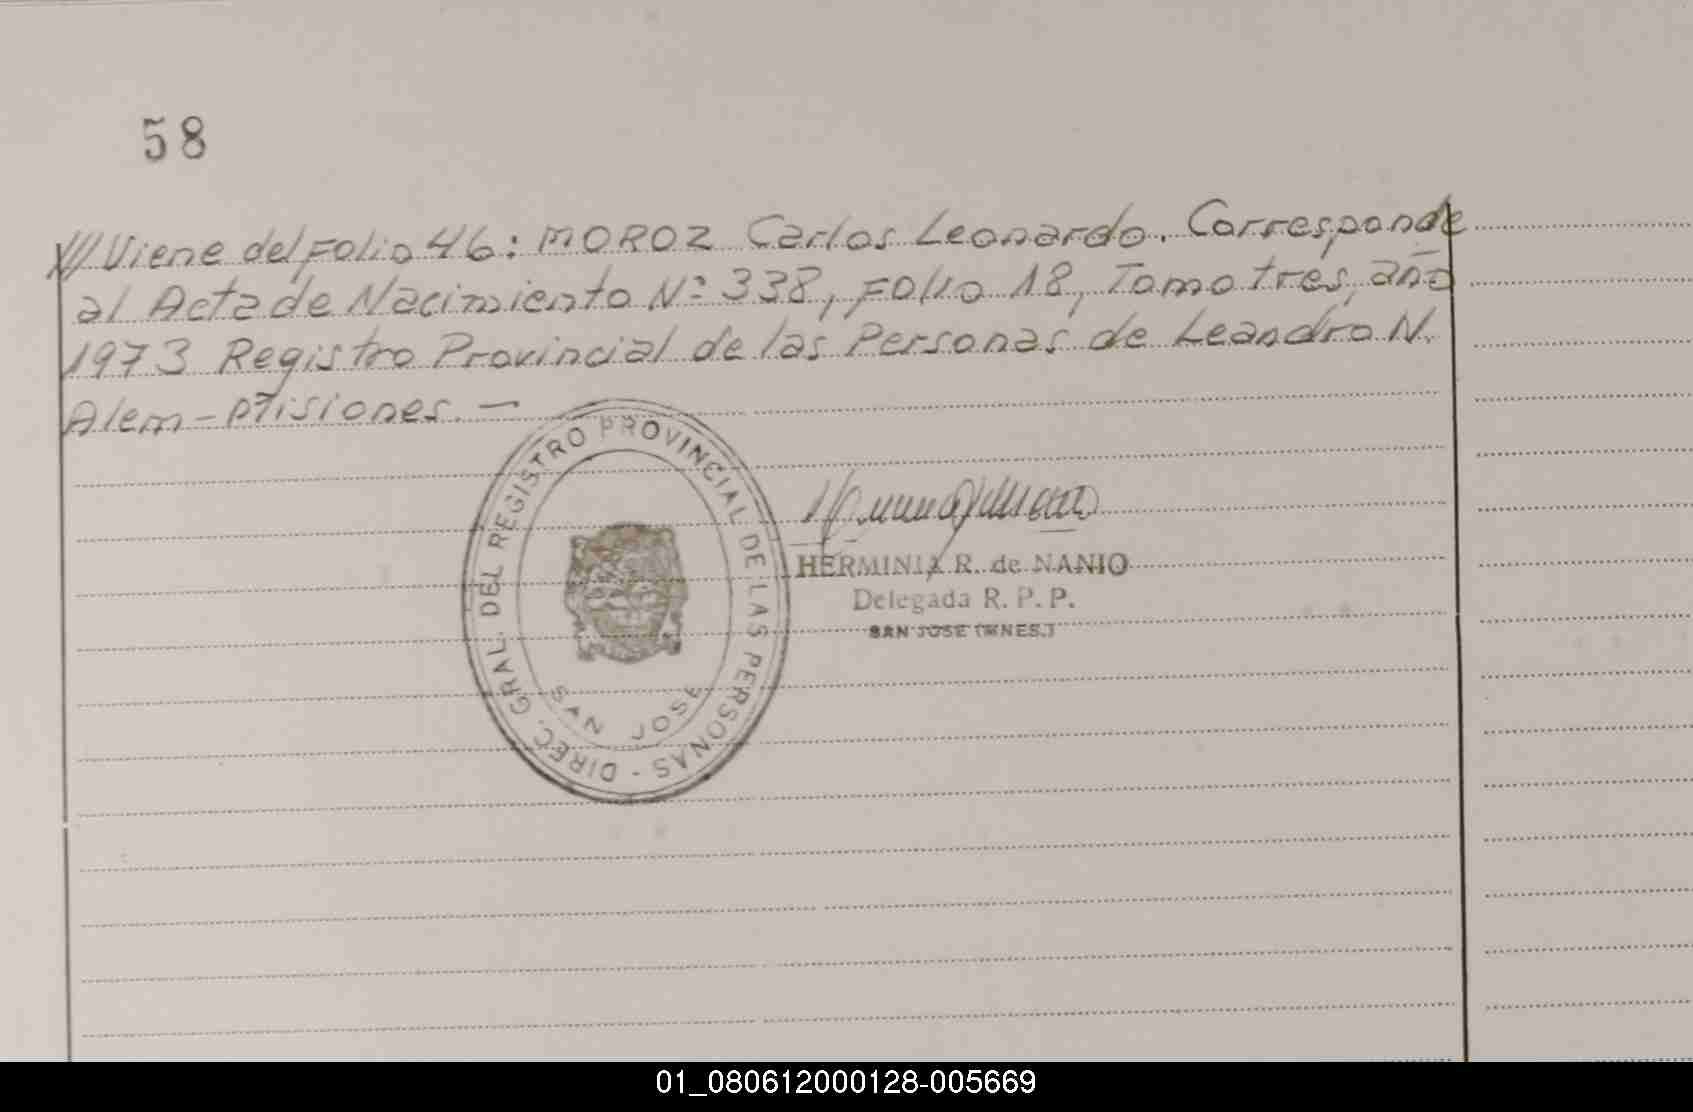 58
/// Viene del Folio 46: MOROZ Carlos Leonardo. Corresponde
al Acta de Nacimiento Nº 338, Folio 18, Tomo tres, año
1973 Registro Provincial de las Personas de Leandro N.
Alem - Misiones. -
DIREC. GRAL. DEL REGISTRO PROVINCIAL DE LAS PERSONAS -
SAN JOSE
HERMINIA R. de NANIO
Delegada R. P. P.
SAN JOSE (MNES.)
01_080612000128-005669